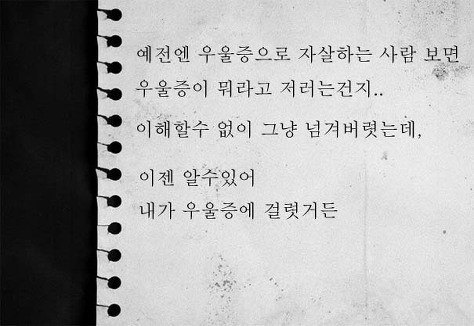 예전엔 우울증으로 자살하는 사람 보면
우울증이 뭐라고 저러는건지..
이해할수 없이 그냥 넘겨버렷는데,
이젠 알수있어
내가 우울증에 걸렷거든